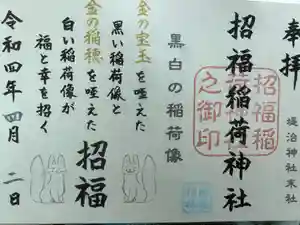 奉拝
堤治神社末社
招福稲荷神社
招福稲
之御印
黒白の稲荷像
金の宝玉を咥えた
黒い稲荷像と
金の稲穂を咥えた
白い稲荷像が
福と幸を招く
招福
令和四年四月二日